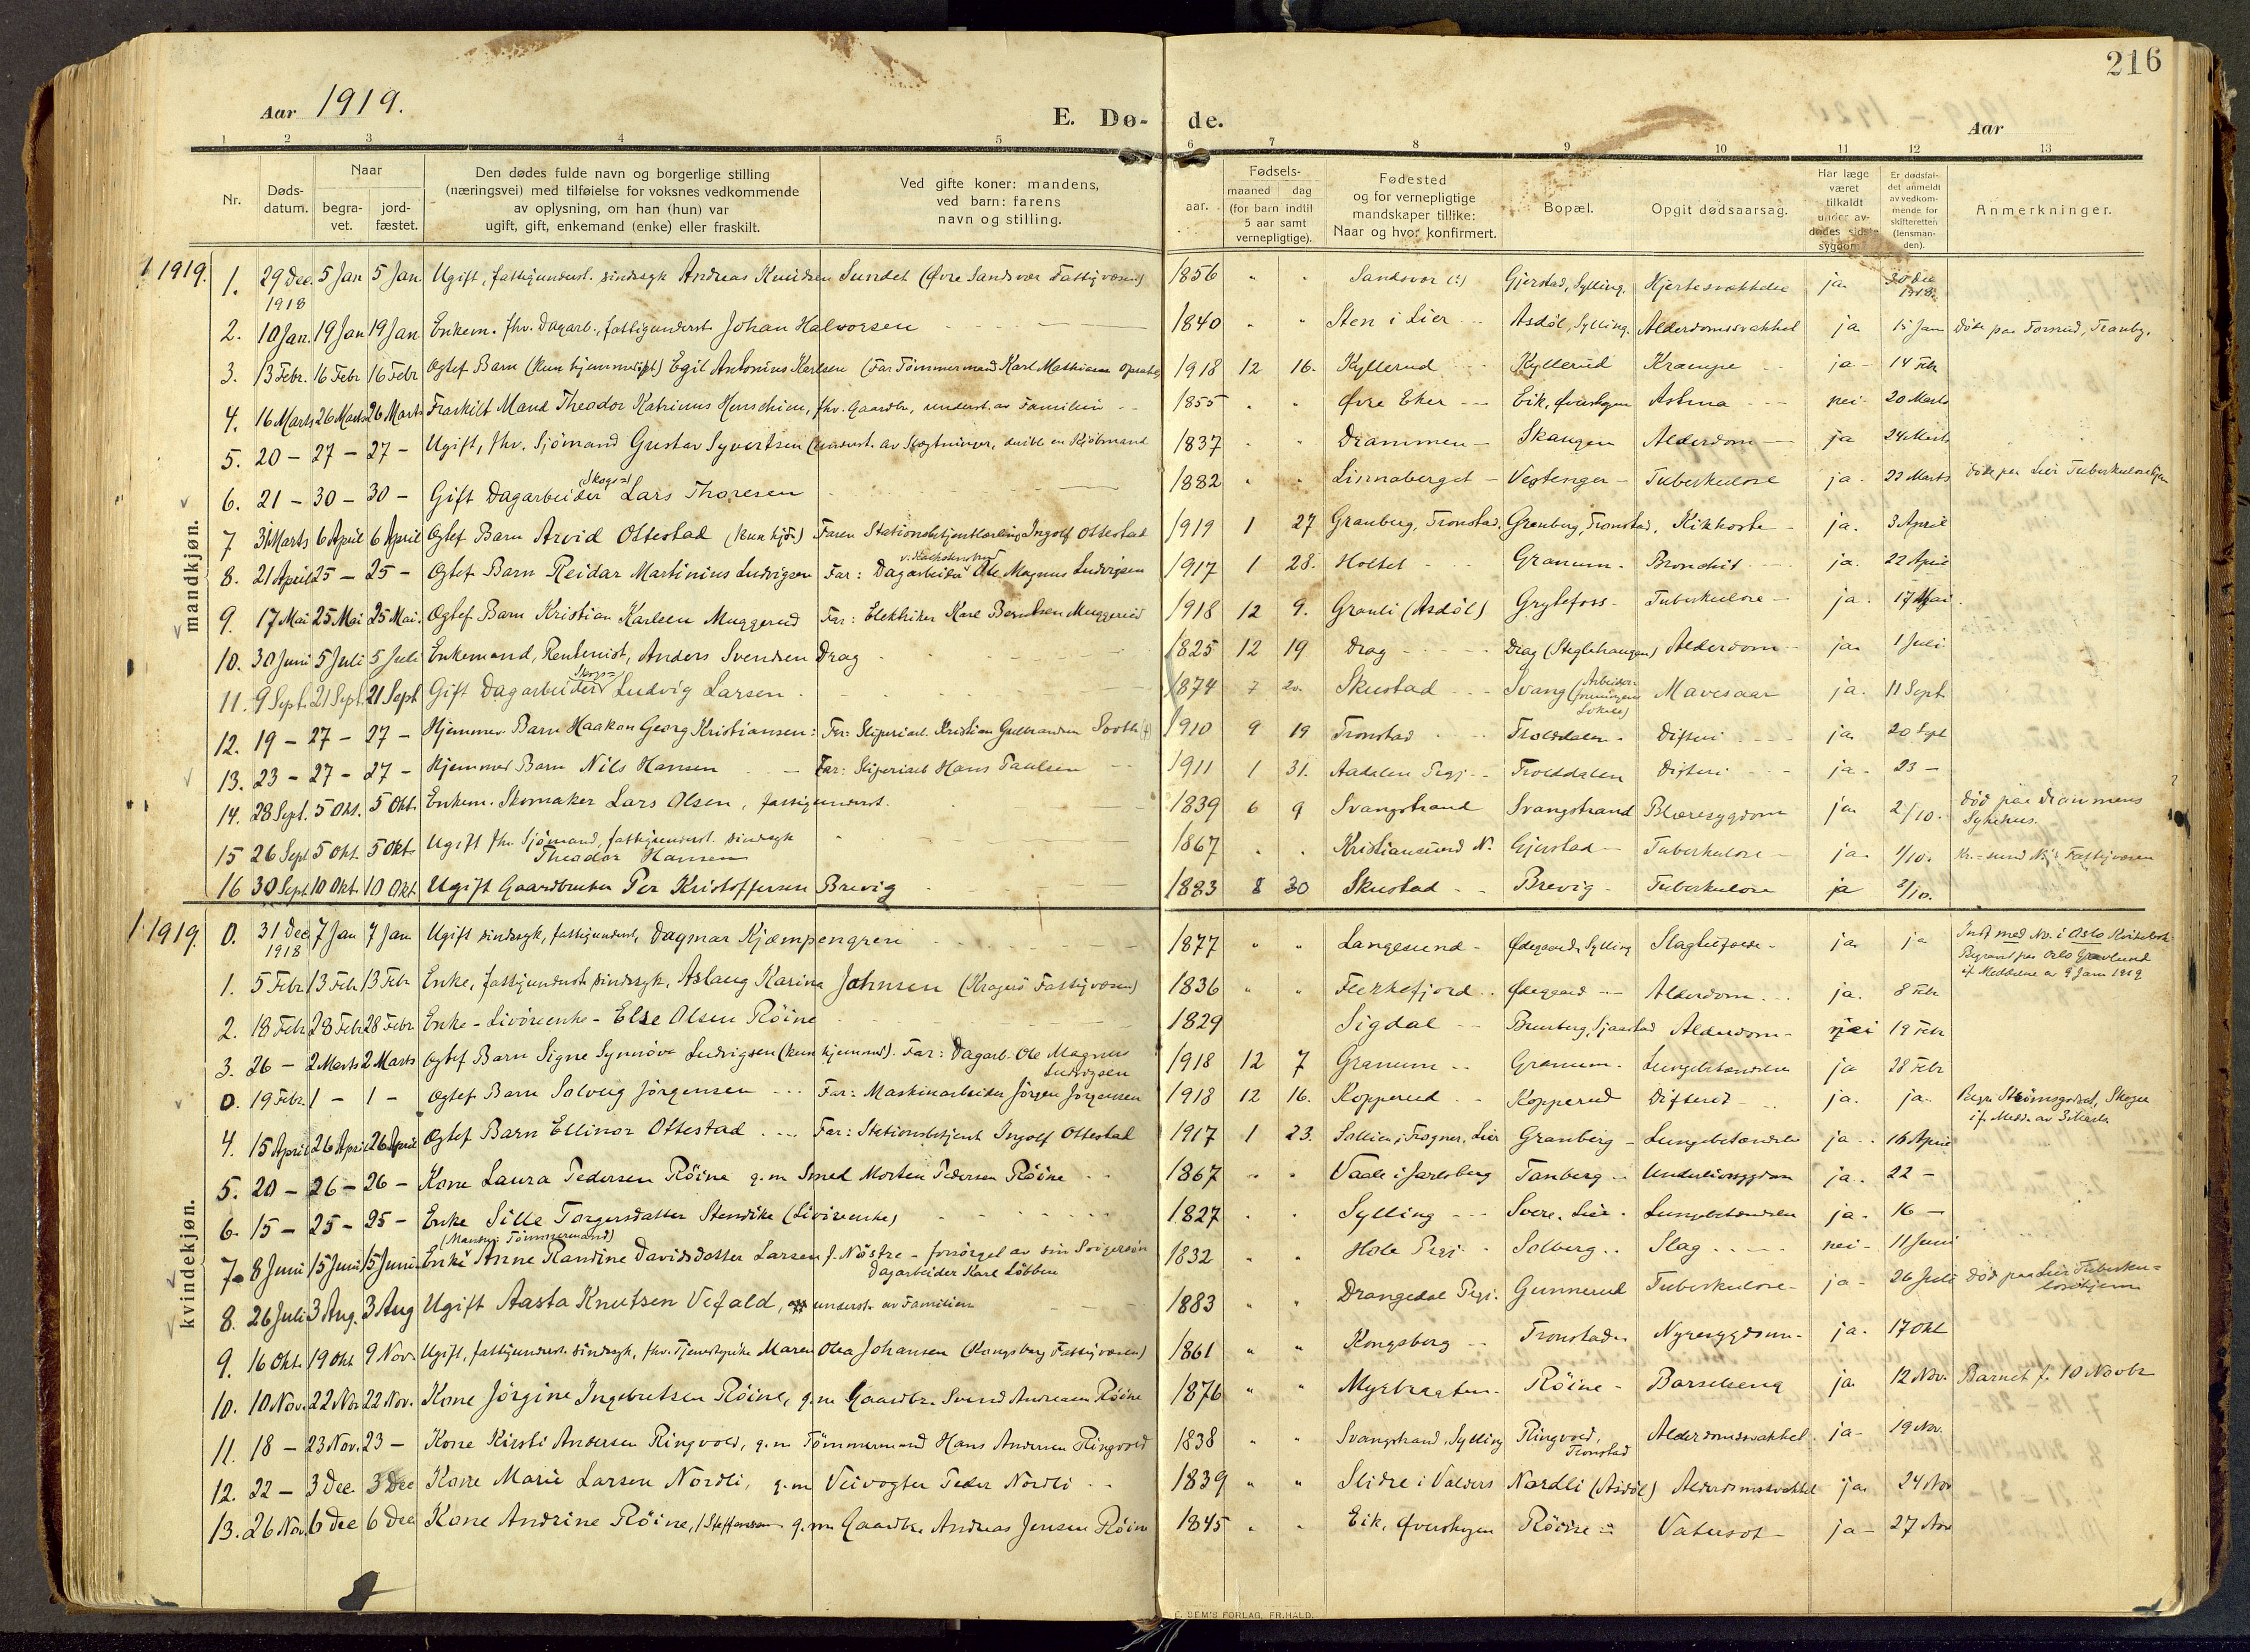 216
Aar 1919.
E. Dø- de.
Aar
1 2 3 4 5 6 7 8 9 10 11 12 13
Nr.
Døds-
datum.
Naar
begra-
vet.
jord-
fæstet.
Den dødes fulde navn og borgerlige stilling
(næringsvei) med tilføielse for voksnes vedkommende
av oplysning, om han (hun) var
ugift, gift, enkemand (enke) eller fraskilt.
Ved gifte koner: mandens,
ved barn: farens
navn og stilling.
aar.
Fødsels-
maaned dag
(for barn indtil
5 aar samt
vernepligtige).
Fødested
og for vernepligtige
mandskaper tillike:
Naar og hvor konfirmert.
Bopæl.
Opgit dødsaarsag.
Har læge
været
tilkaldt
under av-
dødes sidste
sygdom
Er dødsfal-
det anmeldt
av vedkom-
mende for
skifteretten
(lensman-
den).
Anmerkninger.
mandkjøn.
1919. 1. 29 Dec. 1918 5 Jan 5 Jan. Ugift, fattigunderst. sindssyk Andreas Knudsen Sundet (Øvre Sandsvær Fattigvæsen) 1856 " " Sandsvær (?) Gjerstad, Sylling. Hjertesvækkelse ja 30 Dec 1918.
2. 10 Jan. 19 Jan 19 Jan Enkem. fhv. Dagarb., fattigunderst. Johan Halvorsen 1840 " " Sten i Lier Asdøl, Sylling. Alderdomssvækkel ja 15 Jan Døde paa Tranby.
3. 13 Febr. 16 Febr 16 Febr Ogtef Barn (kun hjemmedøpt) Egil Antonius Karlsen (Far Tømmermand Karl Mathiasen 1918 12 16. Kyllerud Kyllerud Krampe ja 14 Febr
4. 16 Marts 26 Marts 26 Marts Fraskilt Mand Theodor Katrinus Henschien, fhv. Gaardbr, underst. av Familien 1855 " " Øvre Eker Eik, Øverskogen Astma nei 20 Marts
5. 20 – 27 – 27 – Ugift, fhv. Sjømand Gustav Syvertsen (underst. av Slegtninger, 1837 " " Drammen Skaugen Alderdom ja 24 Marts
6. 21 – 30 – 30 – Gift Skogs= Dagarbeider Lars Thoresen 1882 " " Linnaberget Vestenger Tuberkulose ja 22 Marts Døde paa Lier Tuberkulosehjem
7 31 Marts 6 April 6 April Ogtef Barn Arvid Ottestad (kun hjd.) Faren Ingolf Ottestad 1919 1 27 Granberg, Tronstad. Granberg, Tronstad. Kikhoste ja. 3 April
8. 21 April 25 – 25 – Ogtef Barn Reidar Martinius Ludvigsen Far: Dagarbeider Ole Magnus Ludvigsen 1917 1 28. Holtet Granum Bronchit ja. 22 April
9. 17 Mai 25 Mai 25 Mai. Ogtef Barn Kristian Karlsen Muggerud Far: Elektriker Karl Berntsen Muggerud 1918 12 9. Granli (Asdøl) Grytefoss Tuberkulose ja. 17 Mai
10. 30 Juni 5 Juli 5 Juli Enkemand, Rentenist, Anders Svendsen Drag 1825 12 19 Drag Drag (Steglehaugen) Alderdom ja 1 Juli
11. 9 Sept. 21 Sept. 21 Sept Gift Skogs= Dagarbeider Ludvig Larsen 1874 7 20. Skustad Svang (Arbeiderforeningens Lokale) Mavesaar ja. 11 Sept.
12. 19 – 27 – 27 – Hjemmev. Barn Haakon Georg Kristiansen: Far: Sliperiarb. Kristian 1910 9 19 Tronstad Trolddalen Difteri ja. 20 Sept
13. 23 – 27 – 27 – Hjemmev Barn Nils Hansen Far: Sliperiarb Hans Paulsen 1911 1 31. Aadalen Prgj. Trolddalen Difteri ja 23 –
14. 28 Sept. 5 Okt. 5 Okt. Enkem. Skomaker Lars Olsen, fattigunderst. 1839 6 9 Svangstrand Svangstrand Blæresygdom ja 2/10. død paa Drammens Sykehus.
15 26 Sept 5 Okt 5 Okt. Ugift fhv. Sjømand, fattigunderst. sindssyk Theodor Hansen 1867 " " Kristiansund N. Gjerstad Tuberkulose ja 1/10. Kr.-sund N. Fattigvæsen
16 30 Sept. 10 Okt. 10 Okt. Ugift Gaardbruker Per Kristoffersen Brevig 1883 8 30 Skustad Brevig Tuberkulose ja 2/10.
kvindekjøn.
1919. 0. 31 Dec 1918 7 Jan 7 Jan Ugift sindssyk, fattigunderst, Dagmar Kjæmpengren 1877 " " Langesund Ødegaard, Sylling Slagtilfælde ja ja Indf med No. i Oslo Begravet paa Oslo Gravlund if Meddelelse av 9 Jan 1919
1. 5 Febr. 13 Febr. 13 Febr Enke, fattigunderst sindssyk, Aslaug Karine Johnsen (Kragerø Fattigvæsen) 1836 " " Flekkefjord Ødegaard Alderdom ja. 8 Febr
2. 18 Febr. 28 Febr. 28 Febr. Enke - Livøreenke - Else Olsen Røine 1829 Sigdal Brenberg, Sjaastad Alderdom nei 19 Febr
3. 26 – 2 Marts 2 Marts Ogtef Barn Signe Synnøve Ludvigsen (kun hjemmed). Far: Dagarb. Ole Magnus Ludvigsen 1918 12 7 Granum Granum Lungebetændelse ja 28 Febr
0. 19 Febr. 1 – 1 – Ogtef Barn Solveig Jørgensen Far: Maskinarbeider Jørgen Jørgensen 1918 12 16. Kopperud Kopperud Difterit ja. ja. Begr. Strømsgodset, Skoger if. Medd. av
4. 15 April 26 April 26 April Ogtef Barn Ellinor Ottestad Far: Stationsbetjent Ingolf Ottestad 1917 1 23. Sollien, Frogner. Lier Granberg Lungebetændelse ja 16 April
5. 20 – 26 – 26 – Kone Laura Pedersen Røine g. m Smed Morten Pedersen Røine 1867 " " Vaale i Jarlsberg Tanberg Underlivssygdom ja. 22 –
6. 15 – 25 – 25 – Enke Sille Torgersdatter Stendike (Livøreenke) 1827 " " Sylling Svere. Lier. Lungebetændelse ja 16 –
7. 8 Juni 15 Juni 15 Juni Enke (Manden: Tømmermand) Anne Randine Davidsdatter Larsen f. Nøstre - forsørget av sin Svigersøn Dagarbeider Karl Løbben 1832 " " Hole Prgj. Solberg Slag nei 11 Juni
8. 26 Juli 3 Aug. 3 Aug Ugift Aasta Knutsen Vefald, underst. av Familien 1883 " " Drangedal Prgj. Gunnerud Tuberkulose ja 26 Juli død paa Lier Tuberkulosehjem
9. 16 Okt. 19 Okt 9 Nov. Ugift, fattigunderst. sindssyk, fhv. Tjenestpike Maren Olea Johansen (Kongsberg Fattigvæsen) 1861 " " Kongsberg Tronstad Nyresygdom ja. 17 Okt
10. 10 Nov. 22 Nov 22 Nov. Kone Jørgine Ingebretsen Røine, g. m Gaardbr. Svend Andreasen Røine 1876 " " Myrbraaten Røine Barselseng ja 12 Nov. Barnet f. 10 Novbr
11. 18 – 23 Nov. 23 – Kone Kirsti Andersen Ringvold, g. m Tømmermand Hans Andersen Ringvold 1838 " " Svangstrand, Sylling Ringvold, Tronstad Alderdomssvækkel. ja 19 Nov.
12. 22 – 3 Dec 3 Dec Kone Marie Larsen Nordli, g. m Veivogter Peder Nordli 1839 " " Slidre i Valders Nordli (Asdøl) Alderdomssvækkel ja 24 Nov
13. 26 Nov. 6 Dec 6 Dec Kone Andrine Røine, f Steffensen g. m Gaardbr. Andreas Jensen Røine 1845 " " Eik, Øverskogen Røine Vatersot ja 27 Nov
E. SEM'S FORLAG, FR.HALD.